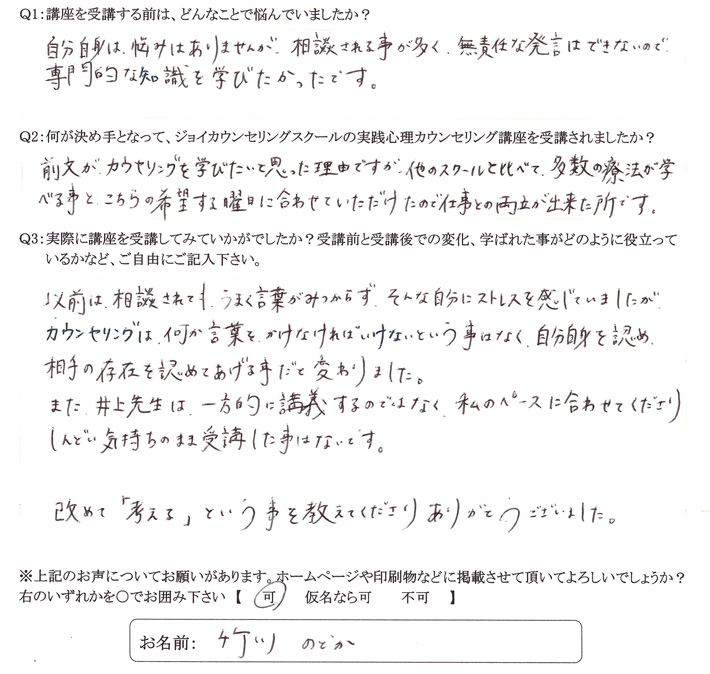 Q1:講座を受講する前は、どんなことで悩んでいましたか?
自分自身は、悩みはありませんが、相談される事が多く、無責任な発言はできないので、
専門的な知識を学びたかったです。
Q2:何が決め手となって、ジョイカウンセリングスクールの実践心理カウンセリング講座を受講されましたか?
前文が、カウセリングを学びたいと思った理由ですが、他のスクールと比べて、多数の療法が学
べる事と、こちらの希望する曜日に合わせていただけたので仕事との両立が出来た所です。
Q3:実際に講座を受講してみていかがでしたか?受講前と受講後での変化、学ばれた事がどのように役立って
いるかなど、ご自由にご記入下さい。
以前は、相談されても、うまく言葉がみつからず、そんな自分にストレスを感じていましたが、
カウンセリングは、何か言葉を、かけなければいけないという事はなく、自分自身を認め、
相手の存在を認めてあげる事だと変わりました。
また、井上先生は、一方的に講義するのではなく、私のペースに合わせてくださり
しんどい気持ちのまま受講した事はないです。
改めて「考える」という事を教えてくださりありがとうございました。
※上記のお声についてお願いがあります。ホームページや印刷物などに掲載させて頂いてよろしいでしょうか?
右のいずれかを○でお囲み下さい 【 可 仮名なら可 不可 】
お名前: 竹川 のどか